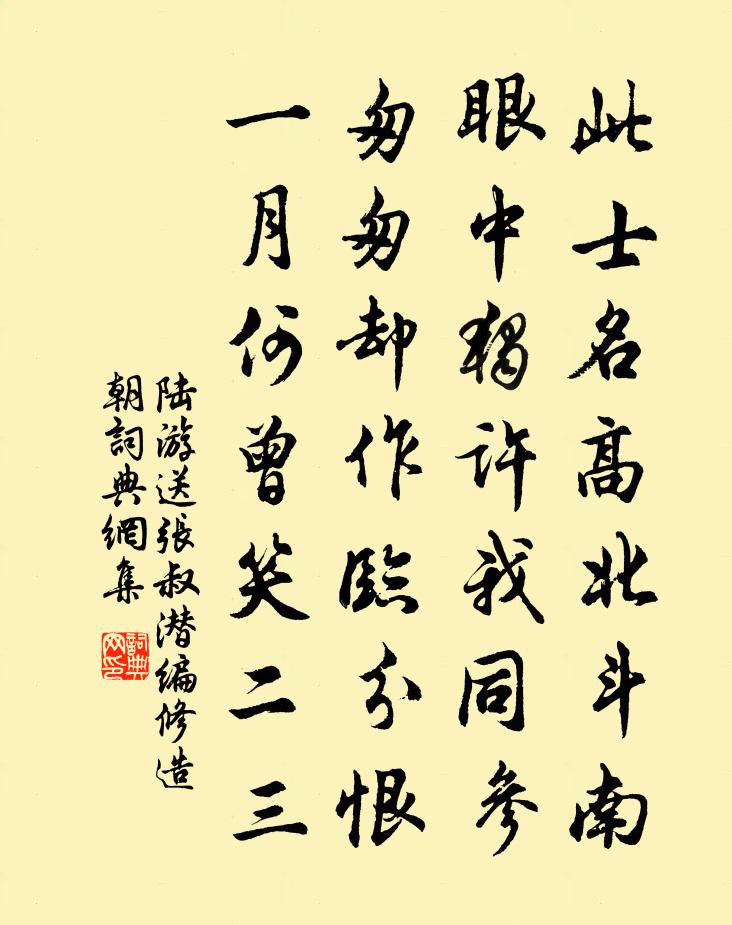 此士名高北斗南
眼中独許我同參
匆匆却作臨分恨
一月何曾笑二三
陆游送張叔潜編修造
朝詞典網集
詞典
网印